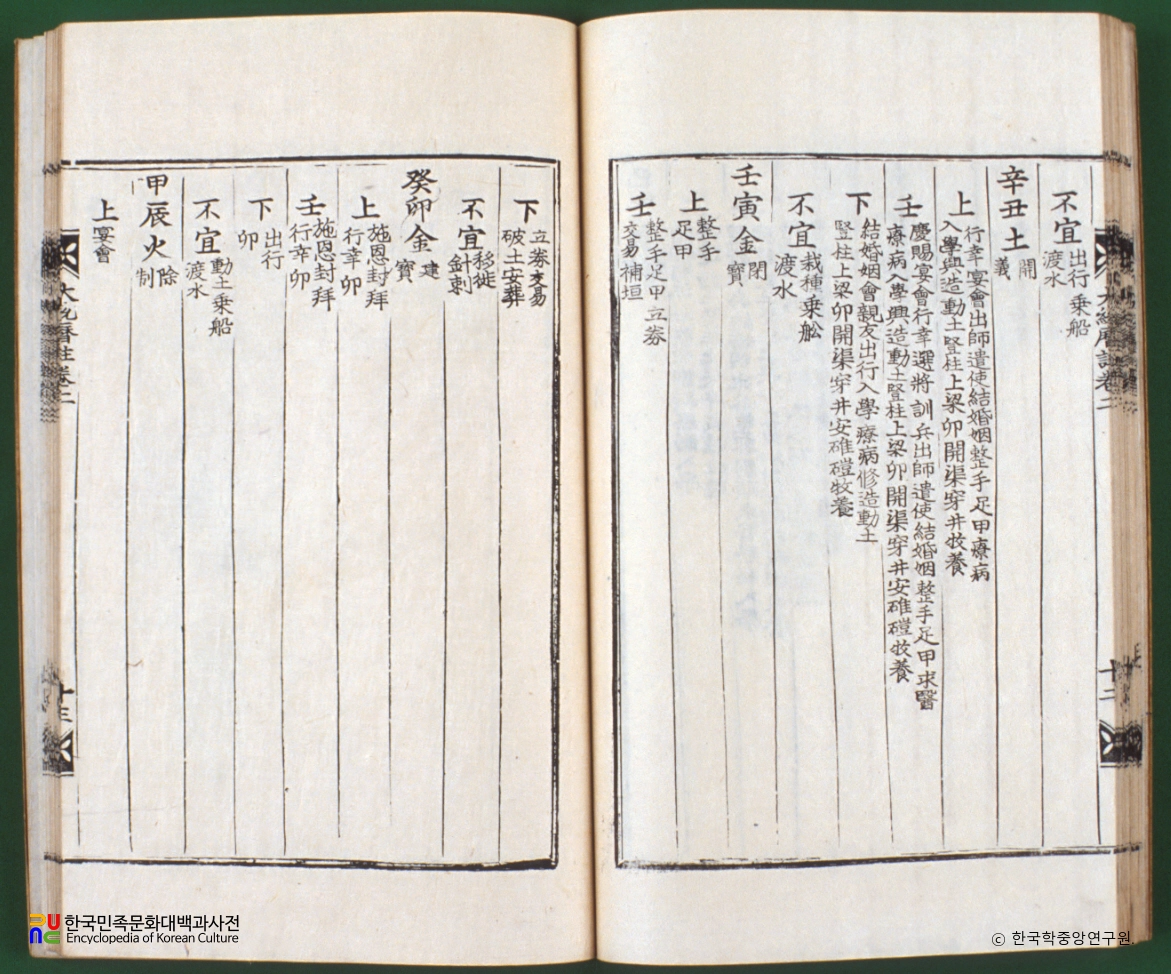 不宜 出行 乘船
渡水
辛丑土 開
義
上 行幸 宴會出師遣使結婚姻整手足甲療病
入學興造動土竪柱上梁卯開渠穿井牧養
壬 慶賜宴會行幸選將訓兵出師遣使結婚姻整手足甲求醫
療病入學興造動土竪柱上梁卯開渠穿井安碓磑牧養
下 結婚姻會親友出行入學療病修造動土
竪柱上梁卯開渠穿井安碓磑牧養
不宜 栽種乘船
渡水
壬寅金 閉
寶
上 整手
足甲
壬 整手足甲立券
交易補垣
下 立券交易
破土安葬
不宜 移徙
針刺
癸卯金 建
寶
上 施恩封拜
行幸卯
壬 施恩封拜
行幸卯
下 出行
卯
不宜 動土乘船
渡水
甲辰火 除
制
上 宴會
卷二
十二
十三
한국민족문화대백과사전
Encyclopedia of Korean Culture
© 한국학중앙연구원